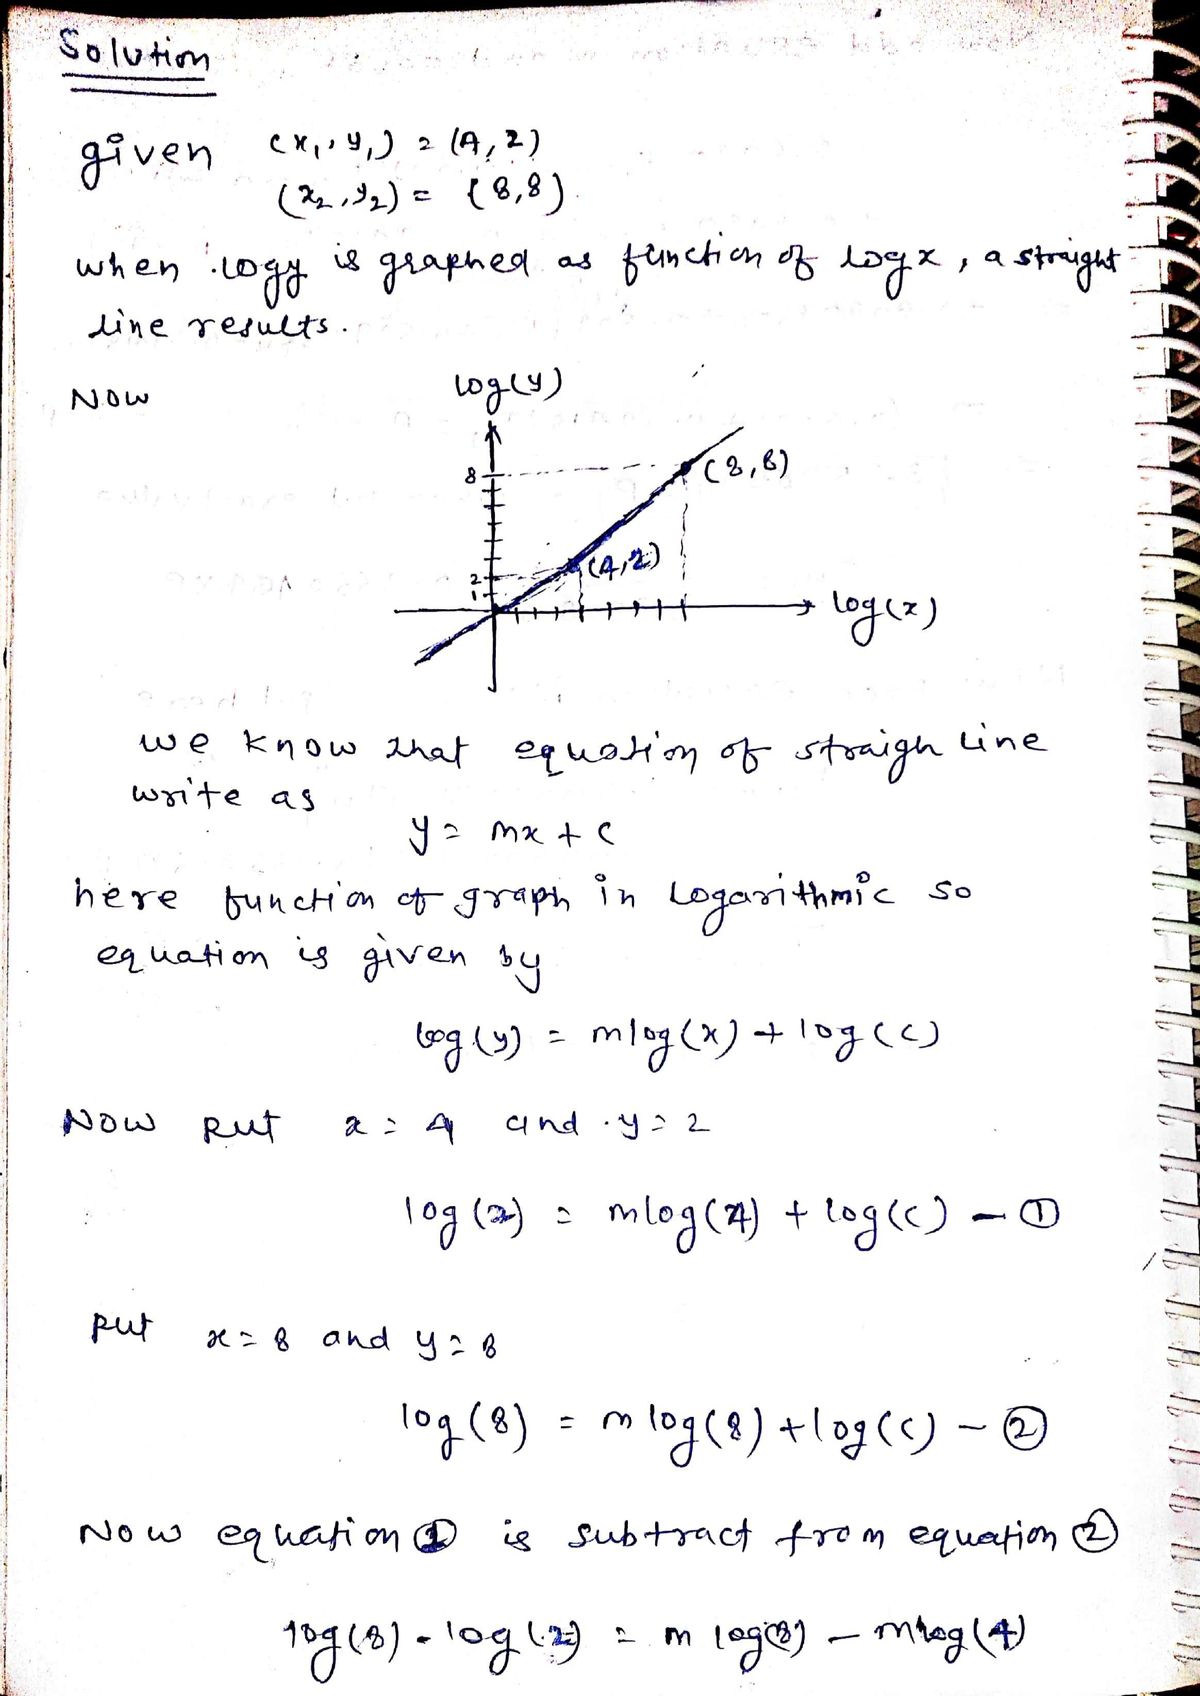 Solution
given (x₁, y₁) = (4, 2)
(x₂, y₂) = (8,8)
when logy is graphed as function of logx, a straight
line results.
Now
log(y)
8
(8,8)
(4,2)
2
1
log(x)
we know that equation of straigh line
write as
y = mx + c
here function of graph in Logarithmic so
equation is given by
log(y) = mlog(x) + log(c)
Now put x = 4 and y = 2
log(2) = mlog(4) + log(c) - ①
put x = 8 and y = 8
log(8) = mlog(8) + log(c) - ②
Now equation ① is subtract from equation ②
log(8) - log(2) = m log(8) - mlog(4)